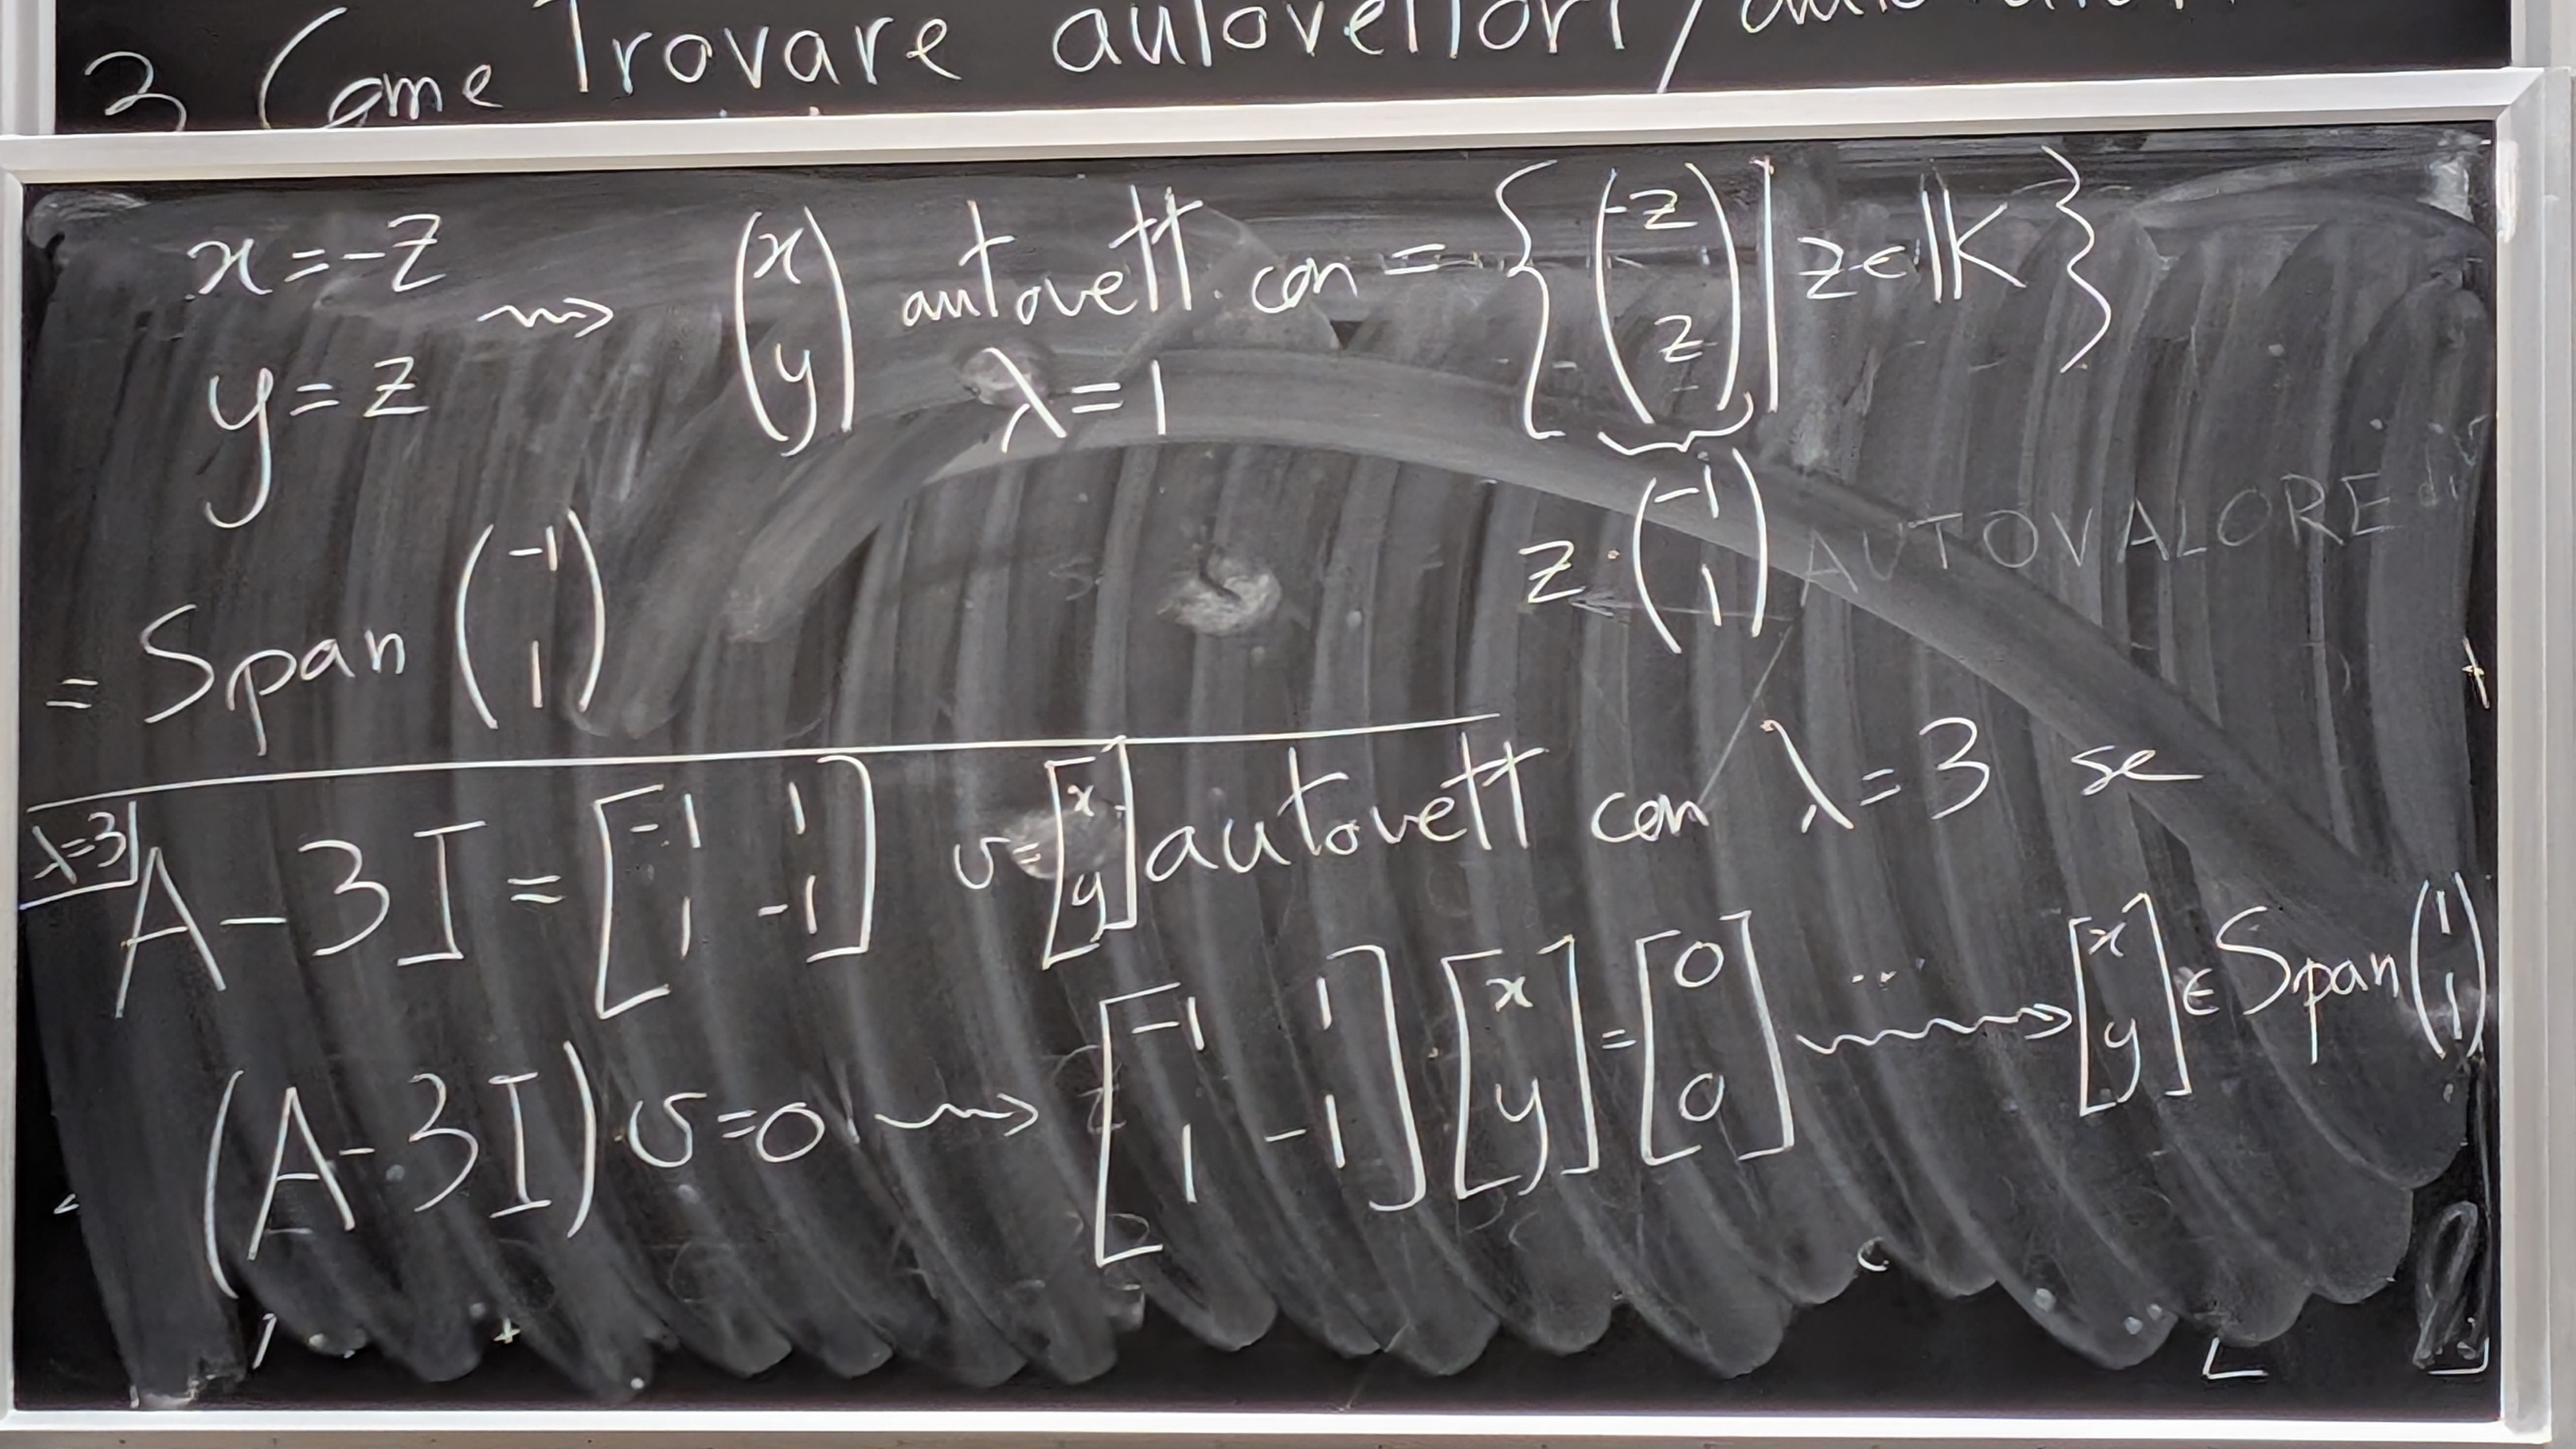 3 Come Trovare autovettori/
x = -z
y = z ⇝ (x y) autovett. con λ = 1 = { (-z z) | z ∈ K }
z · (-1 1)
AUTOVALORE di
= Span (-1 1)
λ=3
A - 3I = [-1 1; 1 -1] v = [x y] autovett con λ = 3 se
(A - 3I) v = 0 ⇝ [-1 1; 1 -1] [x y] = [0 0] ... ⇝ [x y] ∈ Span (1 1)